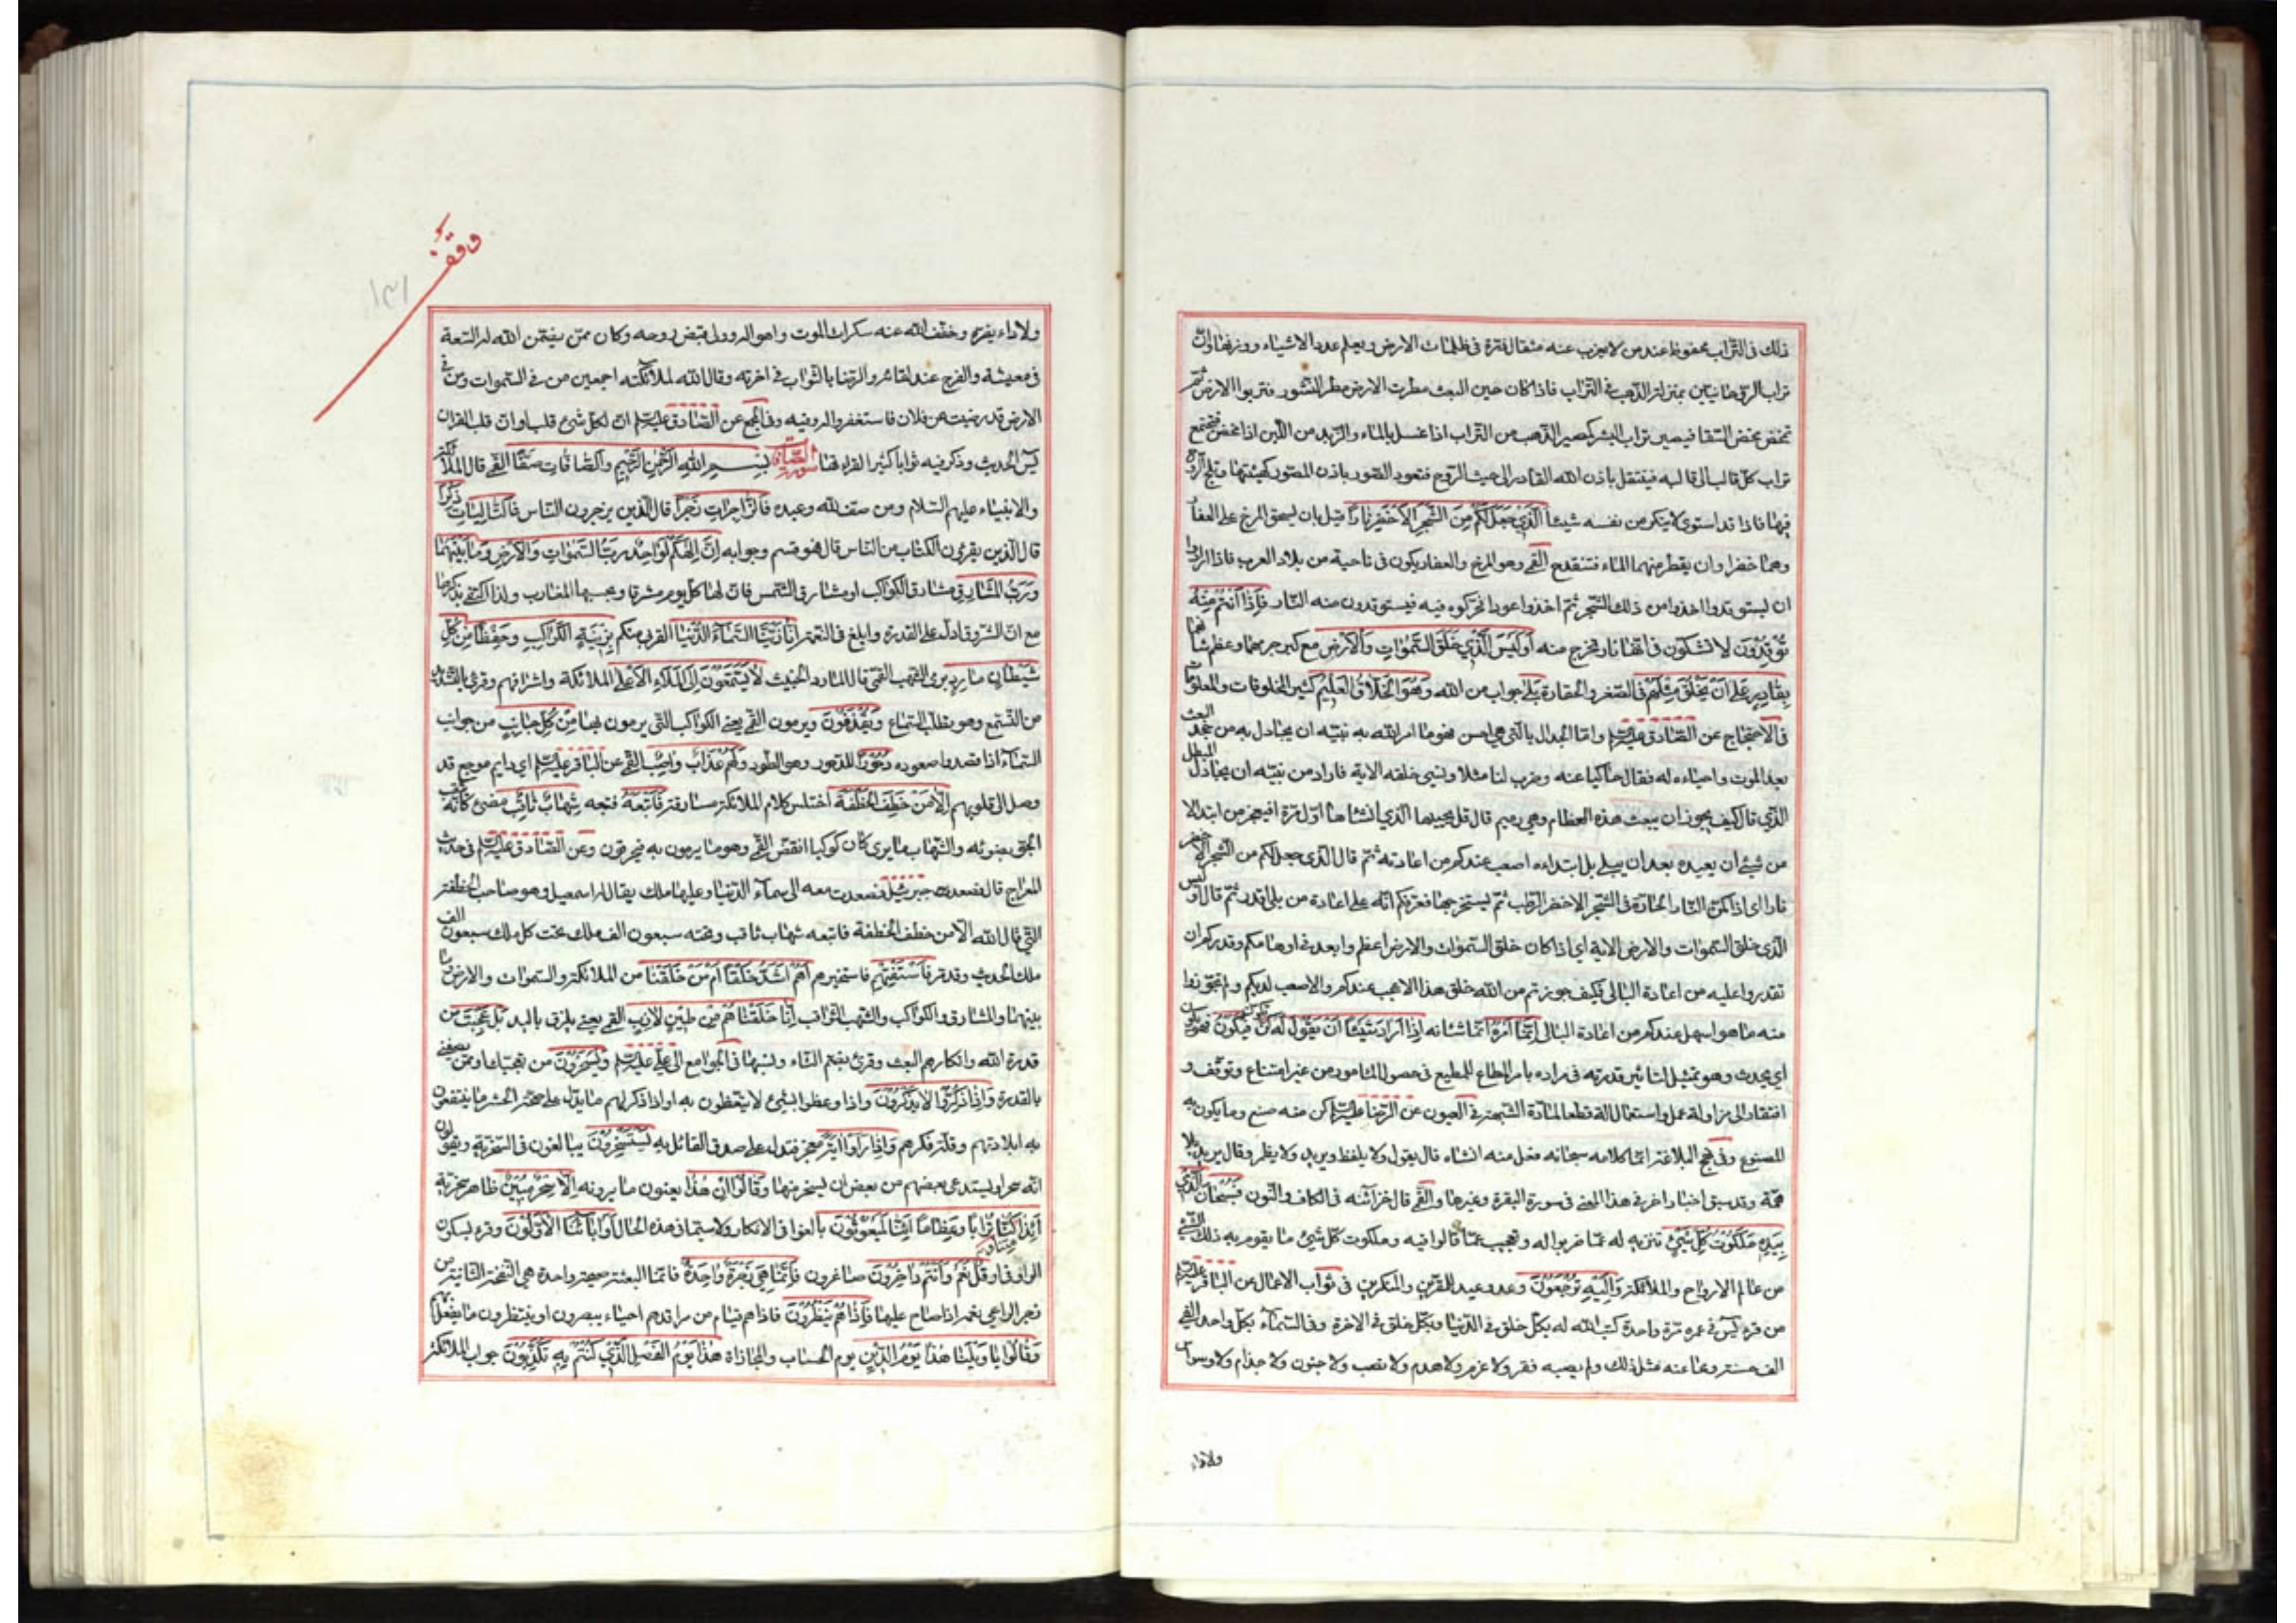 ذلك فى التراب محفوظ عند من لا يعزب عنه مثقال ذرة فى ظلمات الارض ويعلم عدد الاشياء ووزنها وان
تراب الروحانيين بمنزلة الذهب فى التراب فاذا كان حين البعث مطرت الارض مطر النشور فتربوا الارض ثم
تمخض مخض السقا فيصير تراب البشر كمصير الذهب من التراب اذا غسل بالماء والزبد من اللبن اذا مخض فيجتمع
تراب كل قالب الى قالبه فينتقل باذن الله القادر الى حيث الروح فتعود الصور باذن المصور كهيئتها وتلج الروح
فيها فاذا قد استوى لا ينكر من نفسه شيئا الَّذِي جَعَلَ لَكُمْ مِنَ الشَّجَرِ الْأَخْضَرِ نَارًا قيل بان يسحق المرخ على العفار
وهما خضراوان يقطر منهما الماء فتنقدح القمي وهو المرخ والعفار يكون فى ناحية من بلاد العرب فاذا ارادوا
ان يستوقدوا اخذوا من ذلك الشجر ثم اخذوا عودا فحركوه فيه فيستوقدون منه النار فَإِذَا أَنْتُمْ مِنْهُ
تُوقِدُونَ لا تشكون فى انها نار تخرج منه أَوَلَيْسَ الَّذِي خَلَقَ السَّمٰوَاتِ وَالْأَرْضَ مع كبر جرمهما وعظم شانهما
بِقَادِرٍ عَلَى أَنْ يَخْلُقَ مِثْلَهُمْ فى الصغر والحقارة بَلَى جواب من الله وَهُوَ الْخَلَّاقُ الْعَلِيمُ كثير المخلوقات والمعلومات
فى الاحتجاج عن الصادق عليه السلم واما الجدال بالتى هى احسن فهو ما امر الله به نبيه ان يجادل به من جحد البعث
بعد الموت واحياءه له فقال حاكيا عنه وضرب لنا مثلا ونسي خلقه الاية فاراد من نبيه ان يجادل المبطل
الذي قال كيف يجوز ان يبعث هذه العظام وهي رميم قال قل يحييها الذي انشاها اول مرة افيعجز من ابتدا لا
من شيء ان يعيده بعد ان يبلى بل ابتداءه اصعب عندكم من اعادته ثم قال الذى جعل لكم من الشجر الاخضر
نارا اى اذا كمن النار الحارة فى الشجر الاخضر الرطب ثم يستخرجها فعرفكم انه على اعادة من بلى اقدر ثم قال اوليس
الذى خلق السموات والارض الاية اي اذا كان خلق السموات والارض اعظم وابعد فى اوهامكم وقدركم ان
تقدروا عليه من اعادة البالى فكيف جوزتم من الله خلق هذا الاعجب عندكم والاصعب لديكم ولم تجوزوا
منه ما هو اسهل عندكم من اعادة البالى إِنَّمَا أَمْرُهُ انما شانه إِذَا أَرَادَ شَيْئًا أَنْ يَقُولَ لَهُ كُنْ تكون فَيَكُونُ فهو يكون
اي يحدث وهو تمثيل لتاثير قدرته فى مراده بامر المطاع للمطيع فى حصول المامور من غير امتناع وتوقف و
افتقار الى مزاولة عمل واستعمال الة قطعا لمادة الشبهة فى العيون عن الرضا عليه السلم كن منه صنع وما يكون به
المصنوع وفى نهج البلاغة انما كلامه سبحانه فعل منه انشاه قال يقول ولا يلفظ ويريد ولا يضمر وقال يريد بلا
همة وقد سبق اخبار اخر فى هذا المعنى فى سورة البقرة وغيرها والقمي قال خزائنه فى الكاف والنون فَسُبْحَانَ الَّذِي
بِيَدِهِ مَلَكُوتُ كُلِّ شَيْءٍ تنزيه له عما ضربوا له وتعجب عما قالوا فيه وملكوت كل شئ ما يقوم به ذلك الشئ
من عالم الارواح والملائكة وَإِلَيْهِ تُرْجَعُونَ وعد ووعيد للمقرين والمنكرين فى ثواب الاعمال عن الباقر عليه السلم
من قرء يٰس فى عمره مرة واحدة كتب الله له بكل خلق فى الدنيا وبكل خلق فى الاخرة وفى السماء بكل واحد الفي
الف حسنة ومحا عنه مثل ذلك ولم يصبه فقر ولا غرم ولا هدم ولا نصب ولا جنون ولا جذام ولا وسواس
ولا داء
وقف
ولا داء يضره وخفف الله عنه سكرات الموت واهواله وولى قبض روحه وكان ممن يضمن الله له السعة
فى معيشته والفرج عند لقائه والرضا بالثواب فى اخرته وقال الله لملائكته اجمعين من فى السموات ومن فى
الارض قد رضيت عن فلان فاستغفروا له وفيه وفى المجمع عن الصادق عليه السلم ان لكل شئ قلبا وان قلب القران
يٰس الحديث وذكر فيه ثوابا كثيرا لقراءتها سورة الصافات بِسْمِ اللهِ الرَّحْمٰنِ الرَّحِيمِ وَالصَّافَّاتِ صَفًّا القمي قال الملائكة
والانبياء عليهم السلام ومن صف لله وعبده فَالزَّاجِرَاتِ زَجْرًا قال الذين يزجرون الناس فَالتَّالِيَاتِ ذِكْرًا
قال الذين يقرؤن الكتاب من الناس قال فهو قسم وجوابه إِنَّ إِلٰهَكُمْ لَوَاحِدٌ رَبُّ السَّمٰوَاتِ وَالْأَرْضِ وَمَا بَيْنَهُمَا
وَرَبُّ الْمَشَارِقِ مشارق الكواكب او مشارق الشمس فان لها كل يوم مشرقا وبحسبها المغارب ولذا اكتفى بذكرها
مع ان الشروق ادل على القدرة وابلغ فى النعمة إِنَّا زَيَّنَّا السَّمَاءَ الدُّنْيَا القربى منكم بِزِينَةٍ الْكَوَاكِبِ وَحِفْظًا مِنْ كُلِّ
شَيْطَانٍ مَارِدٍ برمي الشهب القمي قال المارد الخبيث لَا يَسَّمَّعُونَ إِلَى الْمَلَإِ الْأَعْلَى الملائكة واشرافهم وقرئ بالتشديد
من التسمع وهو تطلب السماع وَيُقْذَفُونَ ويرمون القمي يعنى الكواكب التى يرمون بها مِنْ كُلِّ جَانِبٍ من جوانب
السماء اذا قصدوا صعوده دُحُورًا للدحور وهو الطرد وَلَهُمْ عَذَابٌ وَاصِبٌ القمي عن الباقر عليه السلم اى دايم موجع قد
وصل الى قلوبهم إِلَّا مَنْ خَطِفَ الْخَطْفَةَ اختلس كلام الملائكة مسارقة فَأَتْبَعَهُ فتبعه شِهَابٌ ثَاقِبٌ مضئ كانه يثقب
الجو بضوئه والشهاب ما يرى كان كوكبا انقض القمي وهو ما يرمون به فيحرقون وعن الصادق عليه السلم فى حديث
المعراج قال فصعد جبرئيل وصعدت معه الى سماء الدنيا وعليها ملك يقال له اسمعيل وهو صاحب الخطفة
التى قال الله الا من خطف الخطفة فاتبعه شهاب ثاقب وتحته سبعون الف ملك تحت كل ملك سبعون الف
ملك الحديث وقد مر فَاسْتَفْتِهِمْ فاستخبرهم أَهُمْ أَشَدُّ خَلْقًا أَمْ مَنْ خَلَقْنَا من الملائكة والسموات والارض وما
بينهما والمشارق والكواكب والشهب الثواقب إِنَّا خَلَقْنَاهُمْ مِنْ طِينٍ لَازِبٍ القمي يعنى يلزق باليد بَلْ عَجِبْتَ من
قدرة الله وانكارهم البعث وقرئ بضم التاء ونسبها فى الجوامع الى علي عليه السلم وَيَسْخَرُونَ من تعجبك وممن يصفنى
بالقدرة وَإِذَا ذُكِّرُوا لَا يَذْكُرُونَ واذا وعظوا بشئ لا يتعظون به او اذا ذكر لهم ما يدل على صحة الحشر ما ينتفعون
به لبلادتهم وقلة فكرهم وَإِذَا رَأَوْا آيَةً معجزة تدل على صدق القائل به يَسْتَسْخِرُونَ يبالغون فى السخرية ويقولون
انه سحر او يستدعى بعضهم من بعض ان يسخر منها وَقَالُوا إِنْ هٰذَا يعنون ما يرونه إِلَّا سِحْرٌ مُبِينٌ ظاهر سحريته
أَئِذَا كُنَّا تُرَابًا وَعِظَامًا أَئِنَّا لَمَبْعُوثُونَ بالغوا فى الانكار ولا سيما فى هذه الحال أَوَآبَاؤُنَا الْأَوَّلُونَ وقرء بسكون
الواو قُلْ نَعَمْ وَأَنْتُمْ دَاخِرُونَ صاغرون فَإِنَّمَا هِيَ زَجْرَةٌ وَاحِدَةٌ فانما البعثة صيحة واحدة هي النفخة الثانية من
زجر الراعي غنمه اذا صاح عليها فَإِذَا هُمْ يَنْظُرُونَ فاذا هم قيام من مراقدهم احياء يبصرون او ينتظرون ما يفعل بهم
وَقَالُوا يَا وَيْلَنَا هٰذَا يَوْمُ الدِّينِ يوم الحساب والمجازاة هٰذَا يَوْمُ الْفَصْلِ الَّذِي كُنْتُمْ بِهِ تُكَذِّبُونَ جواب الملائكة